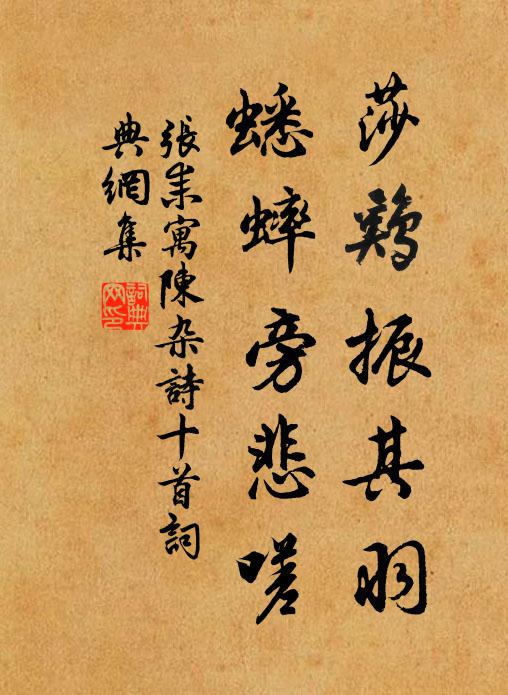 莎鷄振其羽
蟋蟀旁悲嗟
張耒寓陳杂詩十首詞
典網集
詞典網印